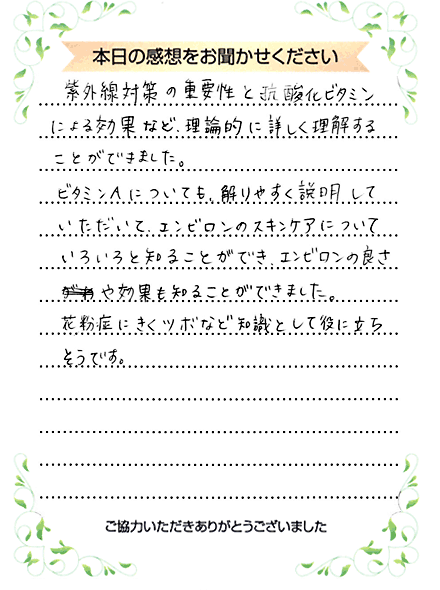 本日の感想をお聞かせください
紫外線対策の重要性と抗酸化ビタミン
による効果など、理論的に詳しく理解する
ことができました。
ビタミンAについても、解りやすく説明して
いただいて、エンビロンのスキンケアについて
いろいろと知ることができ、エンビロンの良さ
や効果も知ることができました。
花粉症にきくツボなど知識として役に立ち
そうです。
ご協力いただきありがとうございました